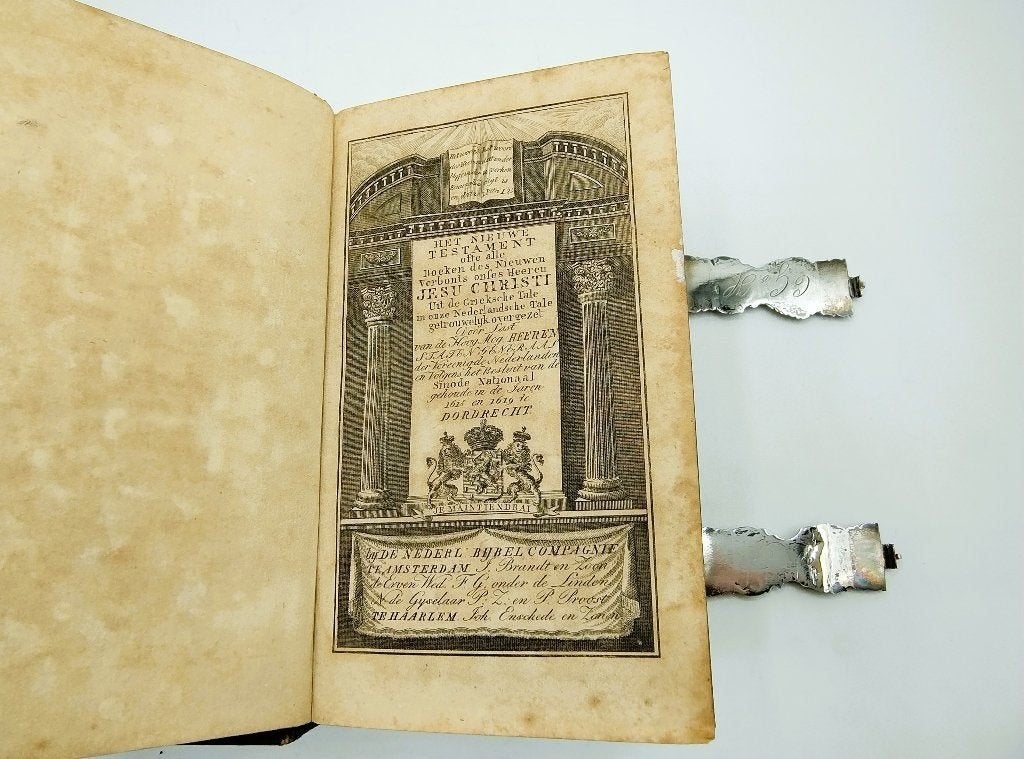 HET NIEUWE
TESTAMENT
ofte alle
Boeken des Nieuwen
Verbonts onses Heeren
JESU CHRISTI
Uit de Grieksche Tale
in onze Nederlandsche Tale
getrouwelijk overgezet
Door Last
van de Hoog Mog HEEREN
STATEN GENERAAL
der Vereenigde Nederlanden
en Volgens het Besluit van de
Sinode Nationaal
gehoude in de Jaren
1618 en 1619 te
DORDRECHT.
JE MAINTIENDRAI
by DE NEDERL BIJBEL COMPAGNIE
TE AMSTERDAM J. Brandt en Zoon
d'Erven Wed. F G. onder de Linden
N de Gyselaar P. Z. en P. Proost
TE HAARLEM Joh. Enschede en Zonen